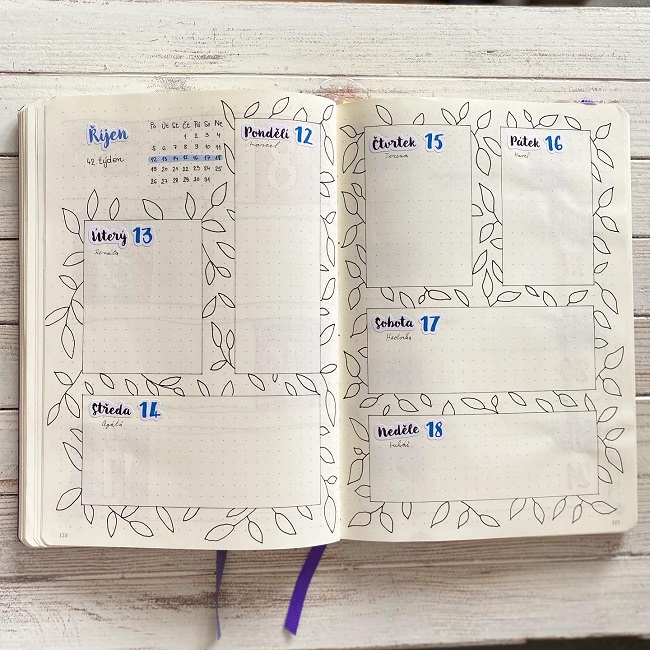 Říjen
42. týden
Po Út St Čt Pá So Ne
1 2 3 4
5 6 7 8 9 10 11
12 13 14 15 16 17 18
19 20 21 22 23 24 25
26 27 28 29 30 31
Pondělí 12
Marcel
Úterý 13
Renáta
Středa 14
Agáta
Čtvrtek 15
Tereza
Pátek 16
Havel
Sobota 17
Hedvika
Neděle 18
Lukáš
128
129